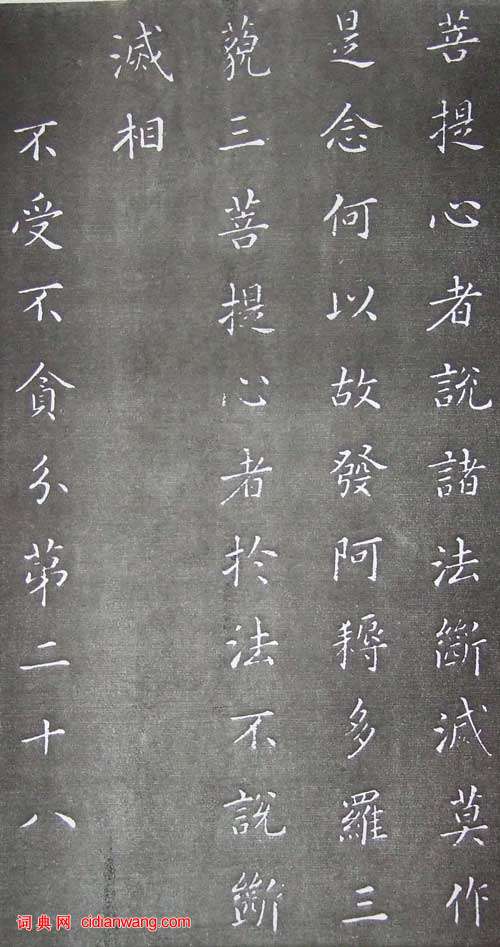 菩提心者說諸法斷滅莫作
是念何以故發阿耨多羅三
藐三菩提心者於法不說斷
滅相
不受不貪分第二十八
词典网 cidianwang.com